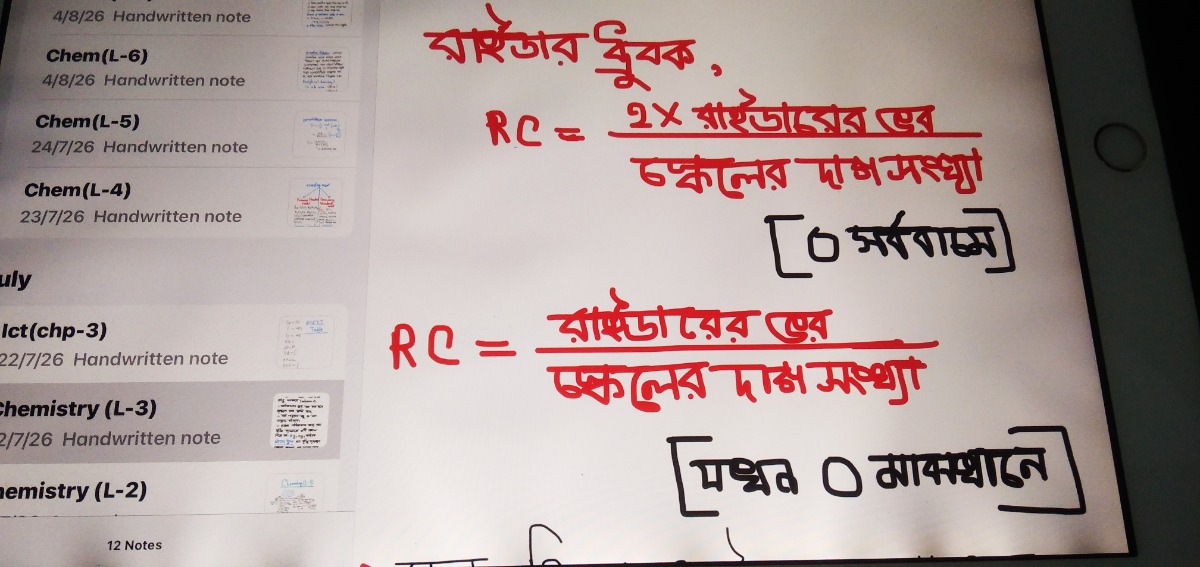 4/8/26 Handwritten note
Chem(L-6)
4/8/26 Handwritten note
Chem(L-5)
24/7/26 Handwritten note
Chem(L-4)
23/7/26 Handwritten note
uly
Ict(chp-3)
22/7/26 Handwritten note
Chemistry (L-3)
2/7/26 Handwritten note
hemistry (L-2)
12 Notes
রাইডার ধ্রুবক,
RC = 2× রাইডারের ভর
স্কেলের দাগ সংখ্যা
[0 সর্ববামে]
RC = রাইডারের ভর
স্কেলের দাগ সংখ্যা
[যখন 0 মাঝখানে]